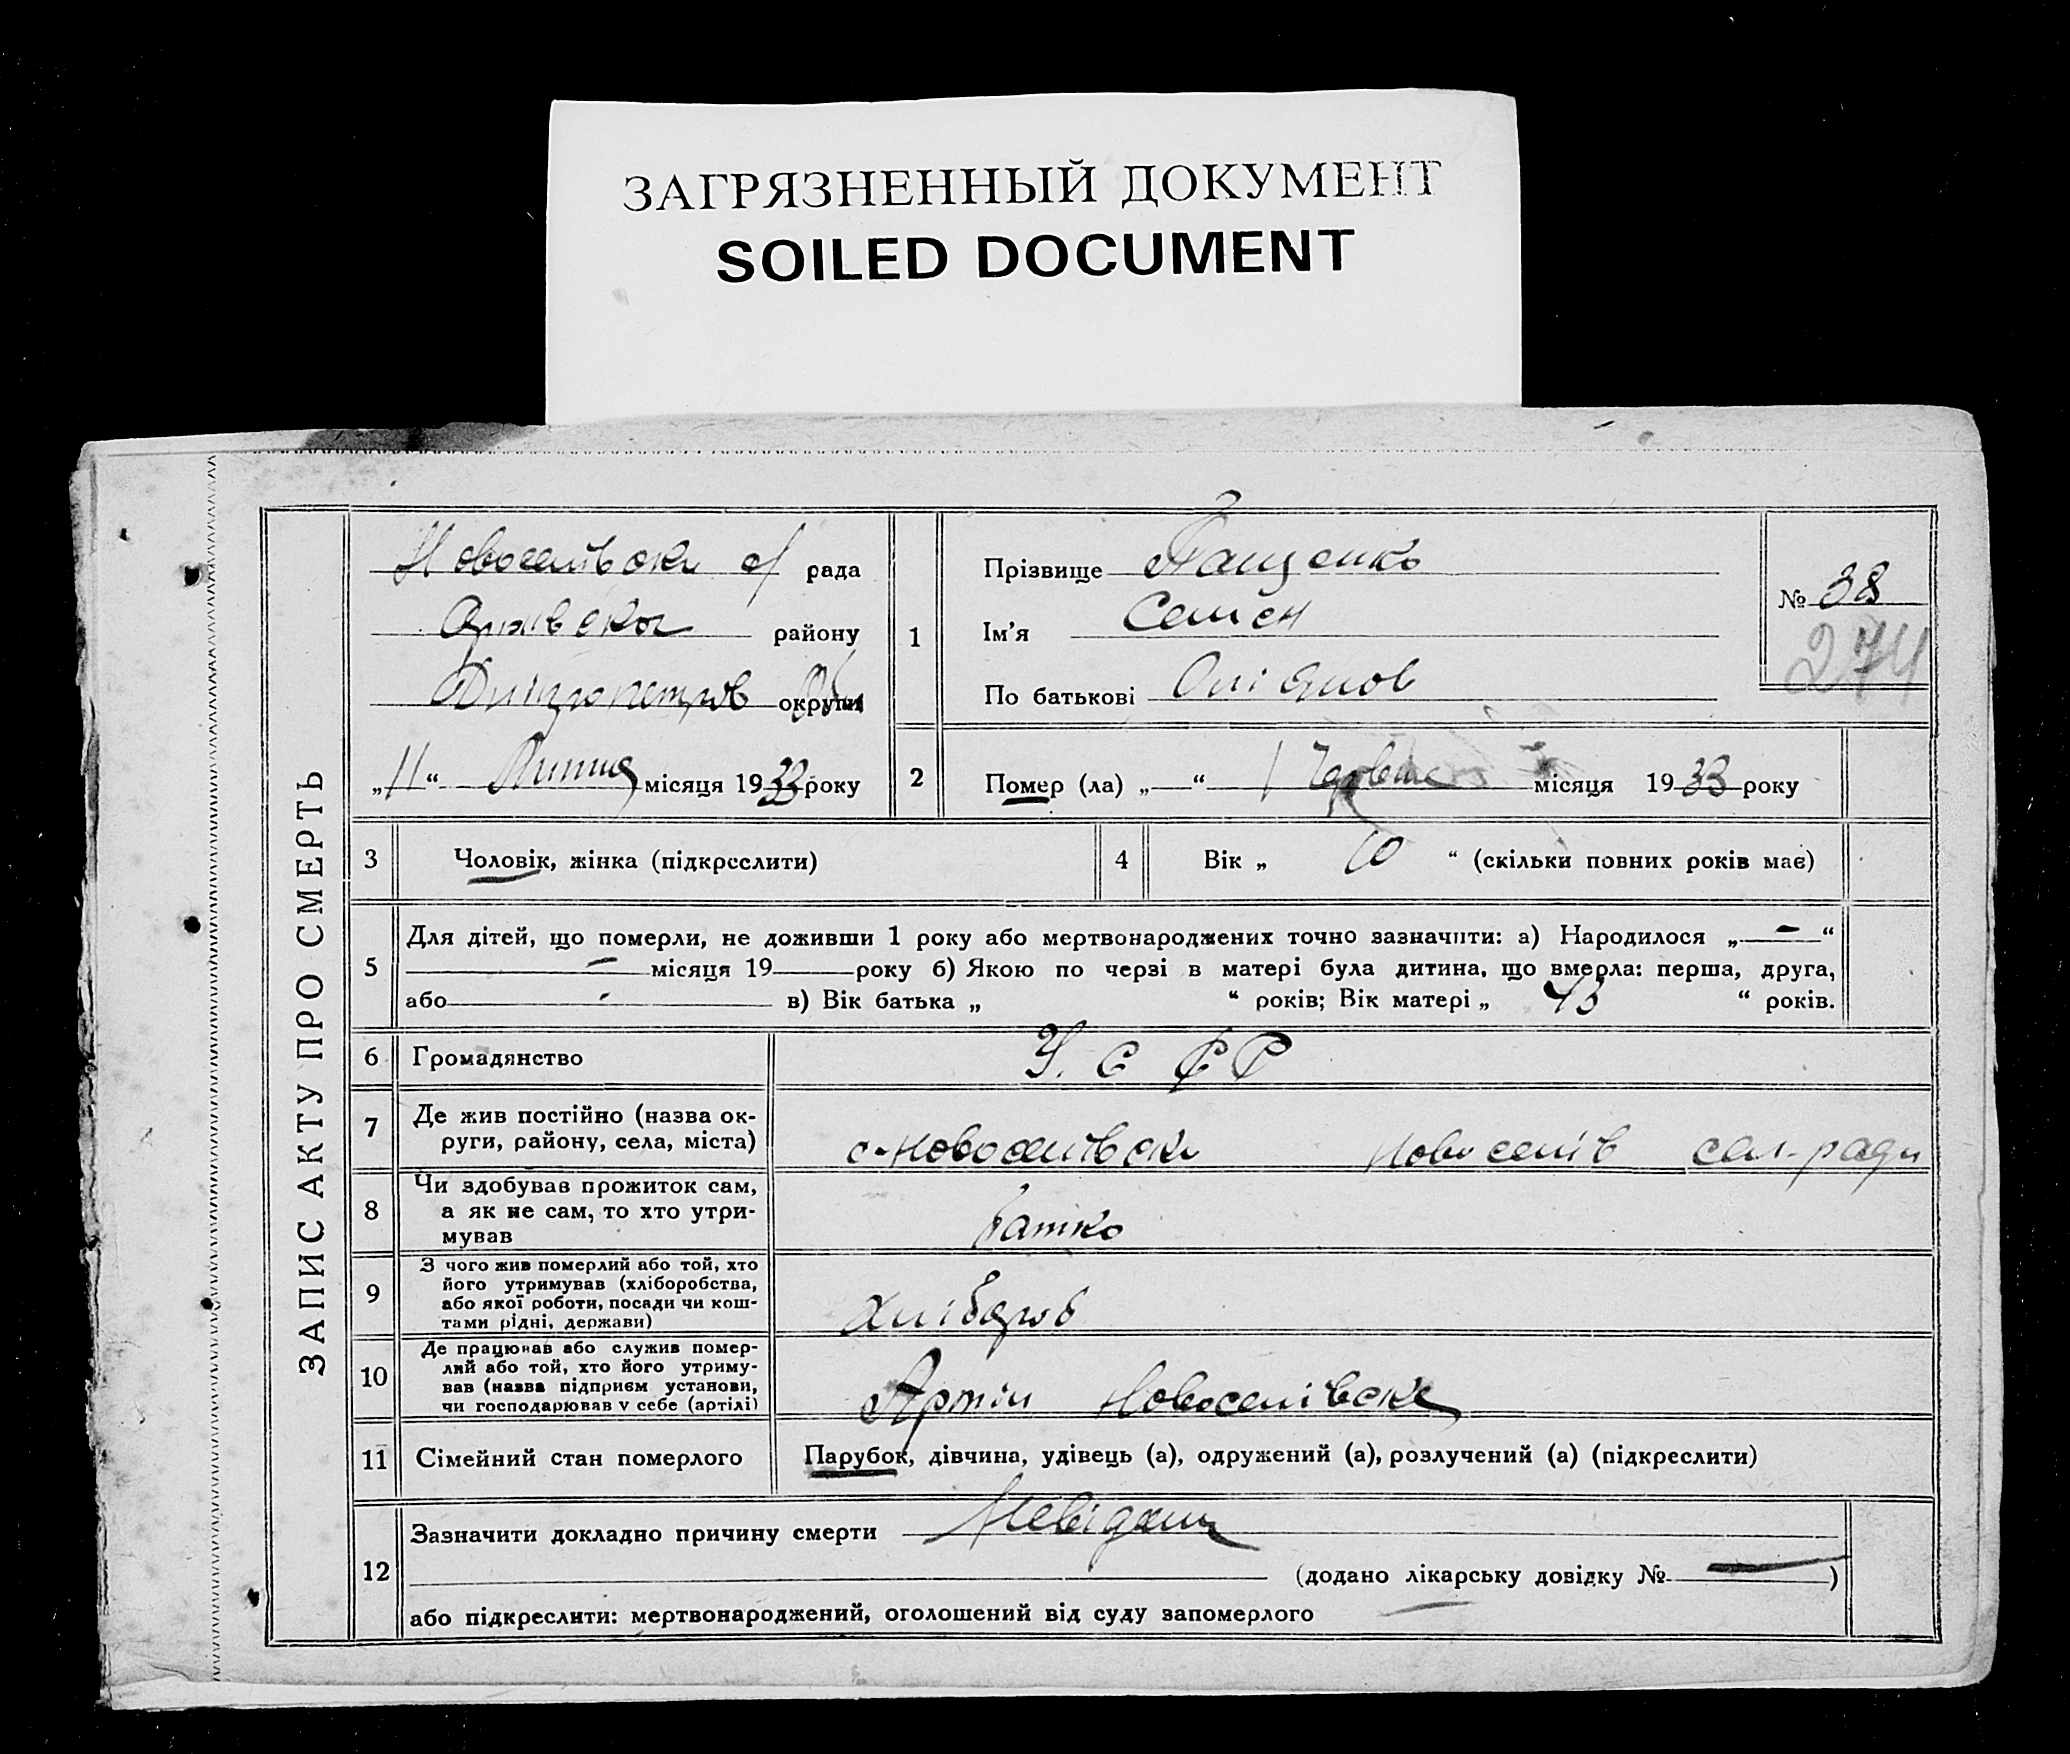 ЗАГРЯЗНЕННЫЙ ДОКУМЕНТ
SOILED DOCUMENT
ЗАПИС АКТУ ПРО СМЕРТЬ
Новоселівськ с/ рада
району
Дніпропетров округи Обл
„11“ Липця місяця 1933 року
1
Прізвище Пащенко
Ім'я Семен
По батькові
№ 38
274
2
Помер (ла) „ “ 1 Червня місяця 1933 року
3
Чоловік, жінка (підкреслити)
4
Вік „ 10 “ (скільки повних років має)
5
Для дітей, що померли, не доживши 1 року або мертвонароджених точно зазначити: а) Народилося „ – “
– місяця 19 року б) Якою по черзі в матері була дитина, що вмерла: перша, друга,
або в) Вік батька „ “ років; Вік матері „ 43 “ років.
6
Громадянство
У. С Р Р
7
Де жив постійно (назва ок-
руги, району, села, міста)
с-Новоселівськ Новоселів сел-ради
8
Чи здобував прожиток сам,
а як не сам, то хто утри-
мував
батко
9
З чого жив померлий або той, хто
його утримував (хліборобства,
або якої роботи, посади чи кош-
тами рідні, держави)
хлібороб
10
Де працював або служив помер-
лий або той, хто його утриму-
вав (назва підприєм установи,
чи господарював у себе (артілі)
Артіл Новоселівське
11
Сімейний стан померлого
Парубок, дівчина, удівець (а), одружений (а), розлучений (а) (підкреслити)
12
Зазначити докладно причину смерти Невідома
(додано лікарську довідку № — )
або підкреслити: мертвонароджений, оголошений від суду запомерлого